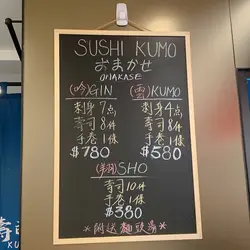 SUSHI KUMO
おまかせ
OMAKASE
(吟)GIN
刺身 7点
寿司 8件
手卷 1條
$780
(雲)KUMO
刺身 4点
寿司 8件
手卷 1條
$580
SHO
寿司 10件
手卷 1條
$380
*附送麵豉湯*